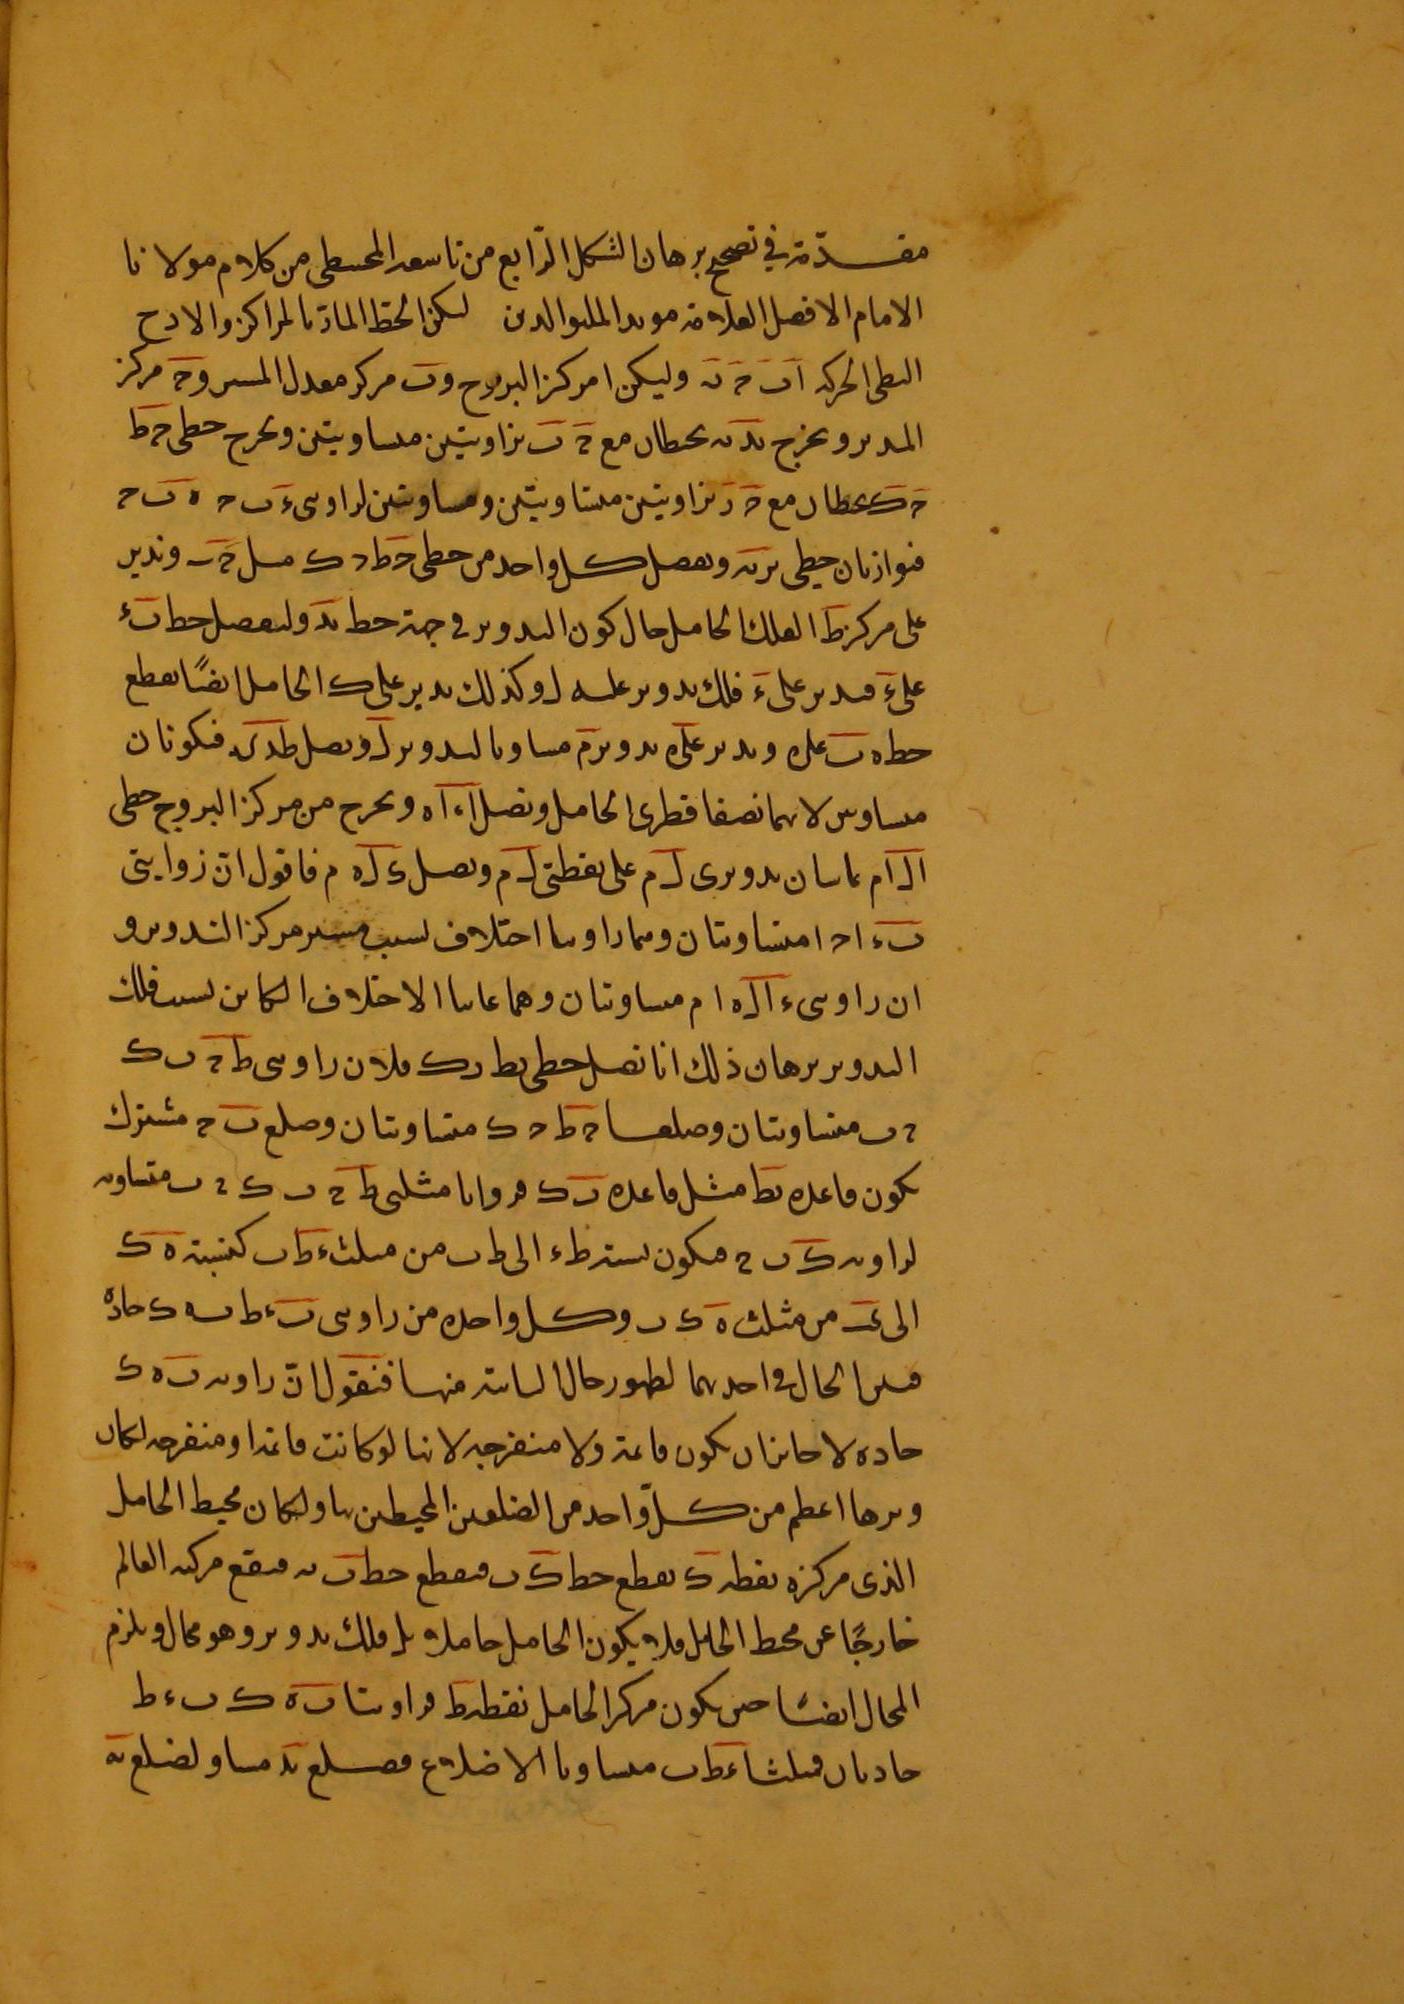 مقدّمة في تصحيح برهان الشكل الرّابع من تاسعه المجسطي من كلام مولانا
الامام الافضل العلامة مويد الملة والدين ليكن الخط المارّ بالمراكز والاوج
البطي الحركة اَبَ حَ دَ وليكن ا مركز البروج وبَ مركز معدل المسير وحَ مركز
المدير ونخرج بَد بَه يحيطان مع حَ بَ بزاويتين متساويتين ونخرج خطي حَ ط
حَ كَ يحيطان مع حَ دَ بزاويتين متساويتين ومساويتين لزاويتي ءَ ب ح ه بَ ح
فيوازيان خطي بَء بَه ونفصل كل واحد من خطي حَط ح ك مثل حَ ب وندير
على مركز طَ الفلك الحامل حال كون التدوير في جهة خط بَد وليفصل خط بَء
على ءَ فندير على ءَ فلك تدوير عليه ل وكذلك ندير على ك الحامل ايضًا يقطع
خط ه بَ على ه وندير على هَ تدويرمَ مساويا لتدوير لَ ونصل طَء كَه فيكونان
متساويين لانهما نصفا قطري الحامل ونصل اَء اَه ونخرج من مركز البروج خطي
اَل اَم يماسان تدويري لَ م على نقطتي لَ م ونصل ء لَ ه م فاقول انّ زوايتي
بَ ء ا ح ا متساويتان وهما زاويتا اختلاف بسبب مسير مركز التدوير و
ان زاويتي ء اَل ه ا م متساويتان وهما غايتا الاختلاف الكاين بسبب فلك
التدوير برهان ذلك انا نصل خطي بط بك فلان زاويتي طَ حَ ب ك
ح ب متساويتان وضلعا حَط ح ك متساويتان وضلع بَ ح مشترك
يكون قاعدة بَط مثل قاعدة بَ ك فزوايا مثلثي طَ حَ ب ك ح ب متساويه
لزاويه كَ ب ح فيكون نسبة ط ء الى ط ب من مثلث ء طَ ب كنسبة ه كَ
الى كَب من مثلث ه ك ب وكل واحده من زاويتي بَ ء ط ب ه ك حادّه
فلنبين الحال في احديهما لظهور حال الباقية منها فنقول انّ زاويه بَ ه ك
حاده لا جائز ان يكون قائمة ولا منفرجه لانها لو كانت قائمة او منفرجه لكان
وترها اعظم من كلّ واحد من الضلعين المحيطين بها ولكان محيط الحامل
الذي مركزه نقطه كَ يقطع خط كَ ب فيقطع خط بَ ه فيقع مركز العالم
خارجًا عن محيط الحامل فلا يكون الحامل حاملا بل فلك تدوير وهو محال ويلزم
المحال ايضًا حين يكون مركز الحامل نقطه طَ فزاويتا بَ ه ك ب ء ط
حادتان فمثلثا ءَط ب متساويا الاضلاع فضلع بَد مساو لضلع بَه